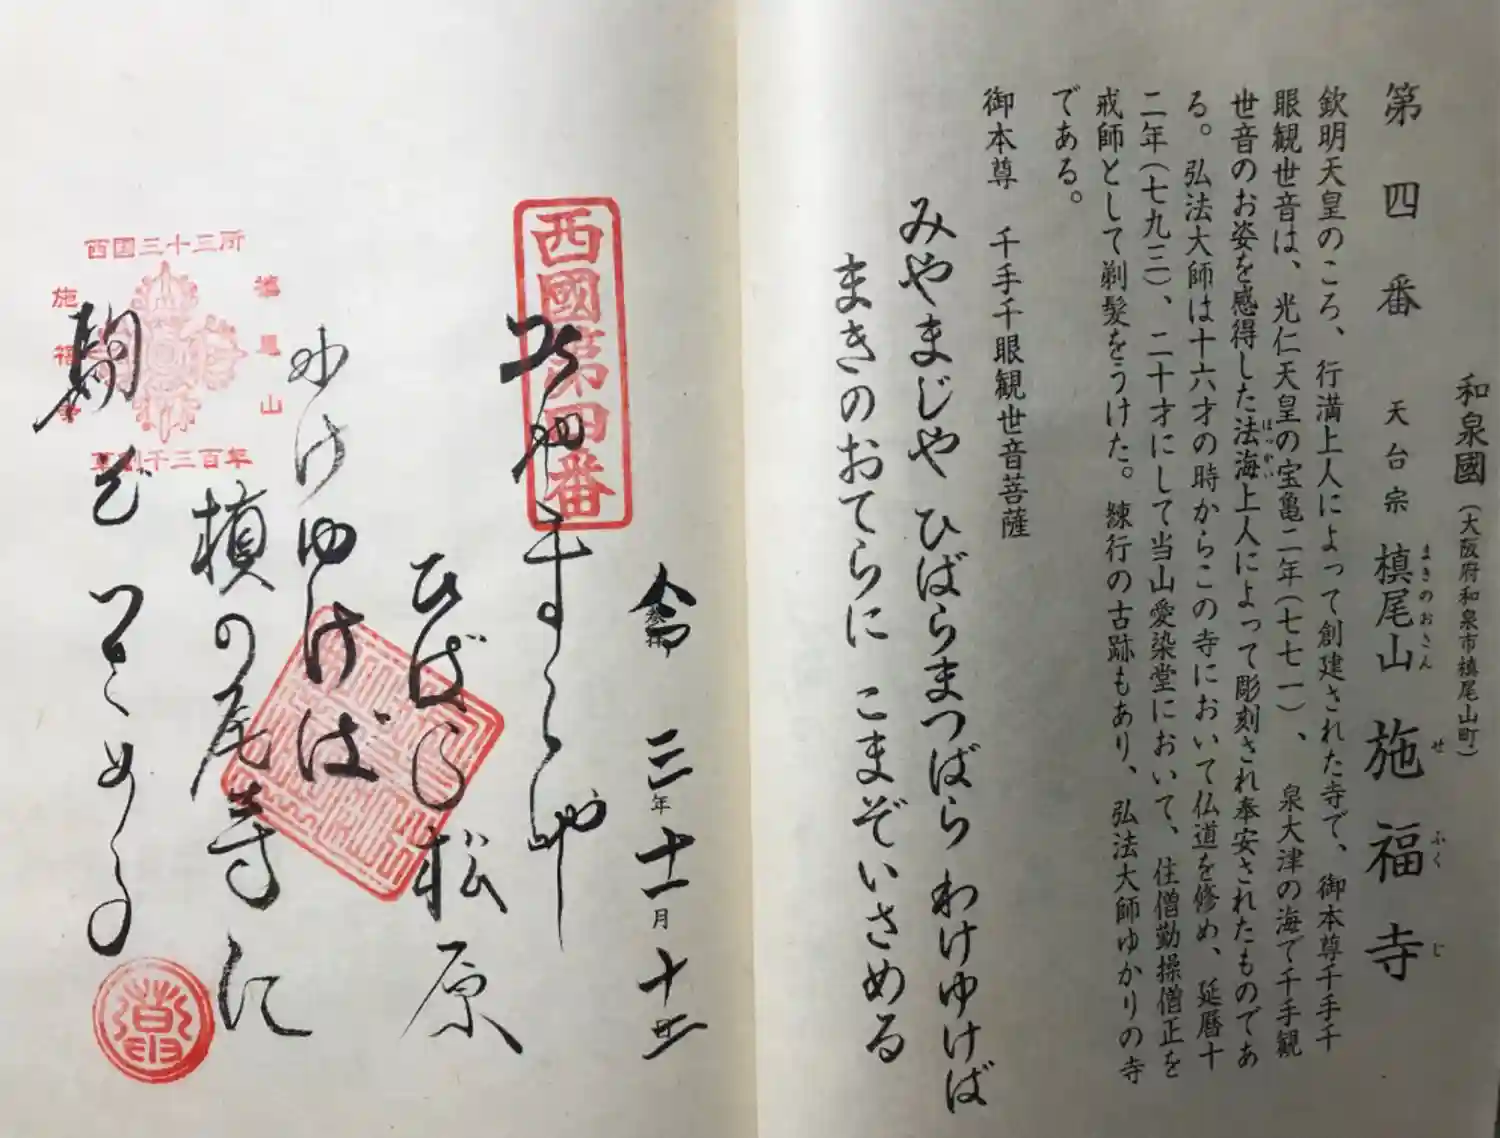 和泉國（大阪府和泉市槙尾山町）
第四番 天台宗 槙尾山 施福寺
まきのおさん せふくじ
欽明天皇のころ、行満上人によって創建された寺で、御本尊千手千
眼観世音は、光仁天皇の宝亀二年（七七一）、泉大津の海で千手観
世音のお姿を感得した法海上人によって彫刻され奉安されたものであ
ほっかい
る。弘法大師は十六才の時からこの寺において仏道を修め、延暦十
二年（七九三）、二十才にして当山愛染堂において、住僧勤操僧正を
戒師として剃髪をうけた。練行の古跡もあり、弘法大師ゆかりの寺
である。
御本尊 千手千眼観世音菩薩
みやまじや ひばらまつばら わけゆけば
まきのおてらに こまぞいさめる
令三年十一月十日
西國第四番
ひばら松原
わけゆけば
槙の尾寺に
駒ぞいさめる
西国三十三所
槙尾山
施福寺
草創千三百年